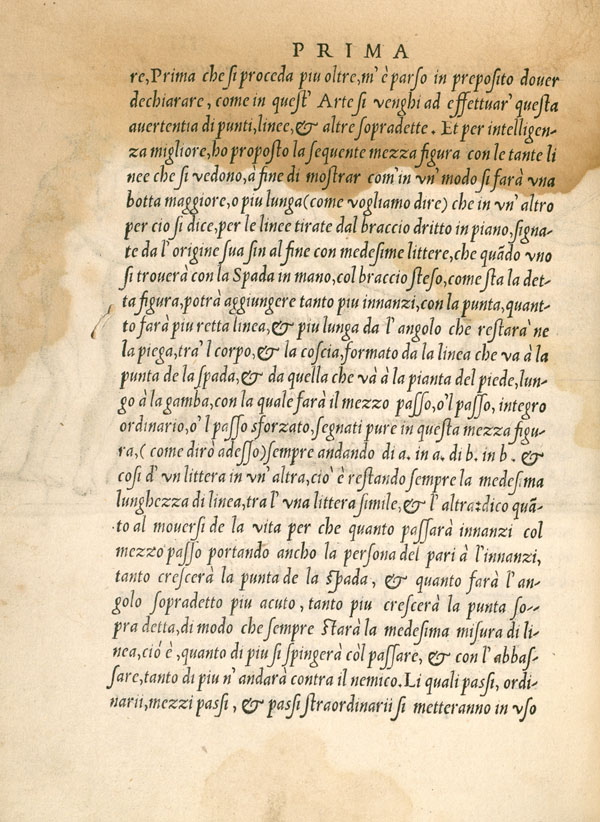 PRIMA
re, Prima che si proceda piu oltre, m' è parso in preposito douer
dechiarare, come in quest' Arte si venghi ad effettuar' questa
auertentia di punti, linee, & altre sopradette. Et per intelligen-
za migliore, ho proposto la sequente mezza figura con le tante li
nee che si vedono, à fine di mostrar com' in vn' modo si farà vna
botta maggiore, o piu lunga (come vogliamo dire) che in vn' altro
per cio si dice, per le linee tirate dal braccio dritto in piano, signa-
te da l' origine sua sin al fine con medesime littere, che quãdo vno
si trouerà con la Spada in mano, col braccio steso, come sta la det-
ta figura, potrà aggiungere tanto piu innanzi, con la punta, quant-
to farà piu retta linea, & piu lunga da l' angolo che restarà ne
la piega, tra' l corpo, & la coscia, formato da la linea che va à la
punta de la spada, & da quella che và à la pianta del piede, lun-
go à la gamba, con la quale farà il mezzo passo, o'l passo, integro
ordinario, o' l passo sforzato, segnati pure in questa mezza figu-
ra, ( come dirò adesso) sempre andando di a. in a. di b. in b. &
cosi d' vn littera in vn' altra, cio' è restando sempre la medesima
lunghezza di linea, tra l' vna littera simile, & l' altra: dico quã-
to al mouersi de la vita per che quanto passarà innanzi col
mezzo passo portando ancho la persona del pari à l'innanzi,
tanto crescerà la punta de la spada, & quanto farà l' an-
golo sopradetto piu acuto, tanto piu crescerà la punta so-
pra detta, di modo che sempre starà la medesima misura di li-
nea, ciò è, quanto di piu si spingerà còl passare, & con l' abbas-
sare, tanto di piu n' andarà contra il nemico. Li quali passi, ordi-
narii, mezzi passi, & passi straordinarii si metteranno in vso